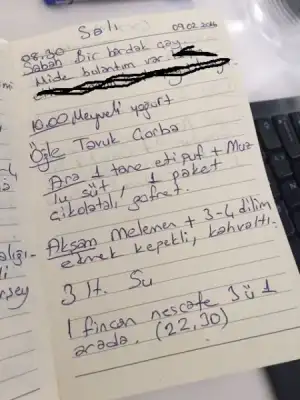 Salı 09.02.2016
08.30
Sabah Bir bardak çay
Mide bulantım var
10.00 Meyveli yoğurt
Öğle Tavuk Çorba
Ara 1 tane etipuf + Muz
süt, 1 paket
çikolatalı gofret.
Akşam Melemen + 3-4 dilim
ekmek kepekli, kahvaltı.
3 lt. Su
1 fincan nescafe 3 ü 1
arada. (22,30)